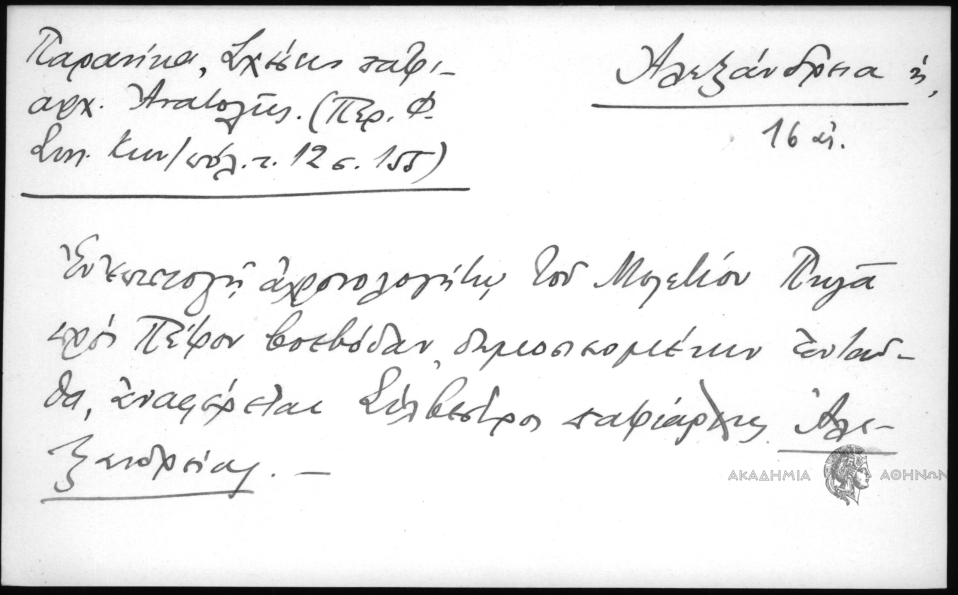 Παρανίκα, Σχέσεις πατρι-
αρχ. Ἀνατολῆς. (Περ. Φ.
Συλ. Κων/πόλ. τ. 12 σ. 155)
Ἀλεξάνδρεια ἡ,
16 αἰ.
Ἐν ἐπιστολῇ ἀχρονολογήτῳ τοῦ Μελετίου Πηγᾶ
πρός Πέτρον βοεβόδαν, δημοσιευομένῃ ἐνταῦ-
θα, ἀναφέρεται Σίλβεστρος πατριάρχης Ἀλε-
ξανδρείας. —
ΑΚΑΔΗΜΙΑ ΑΘΗΝΩΝ